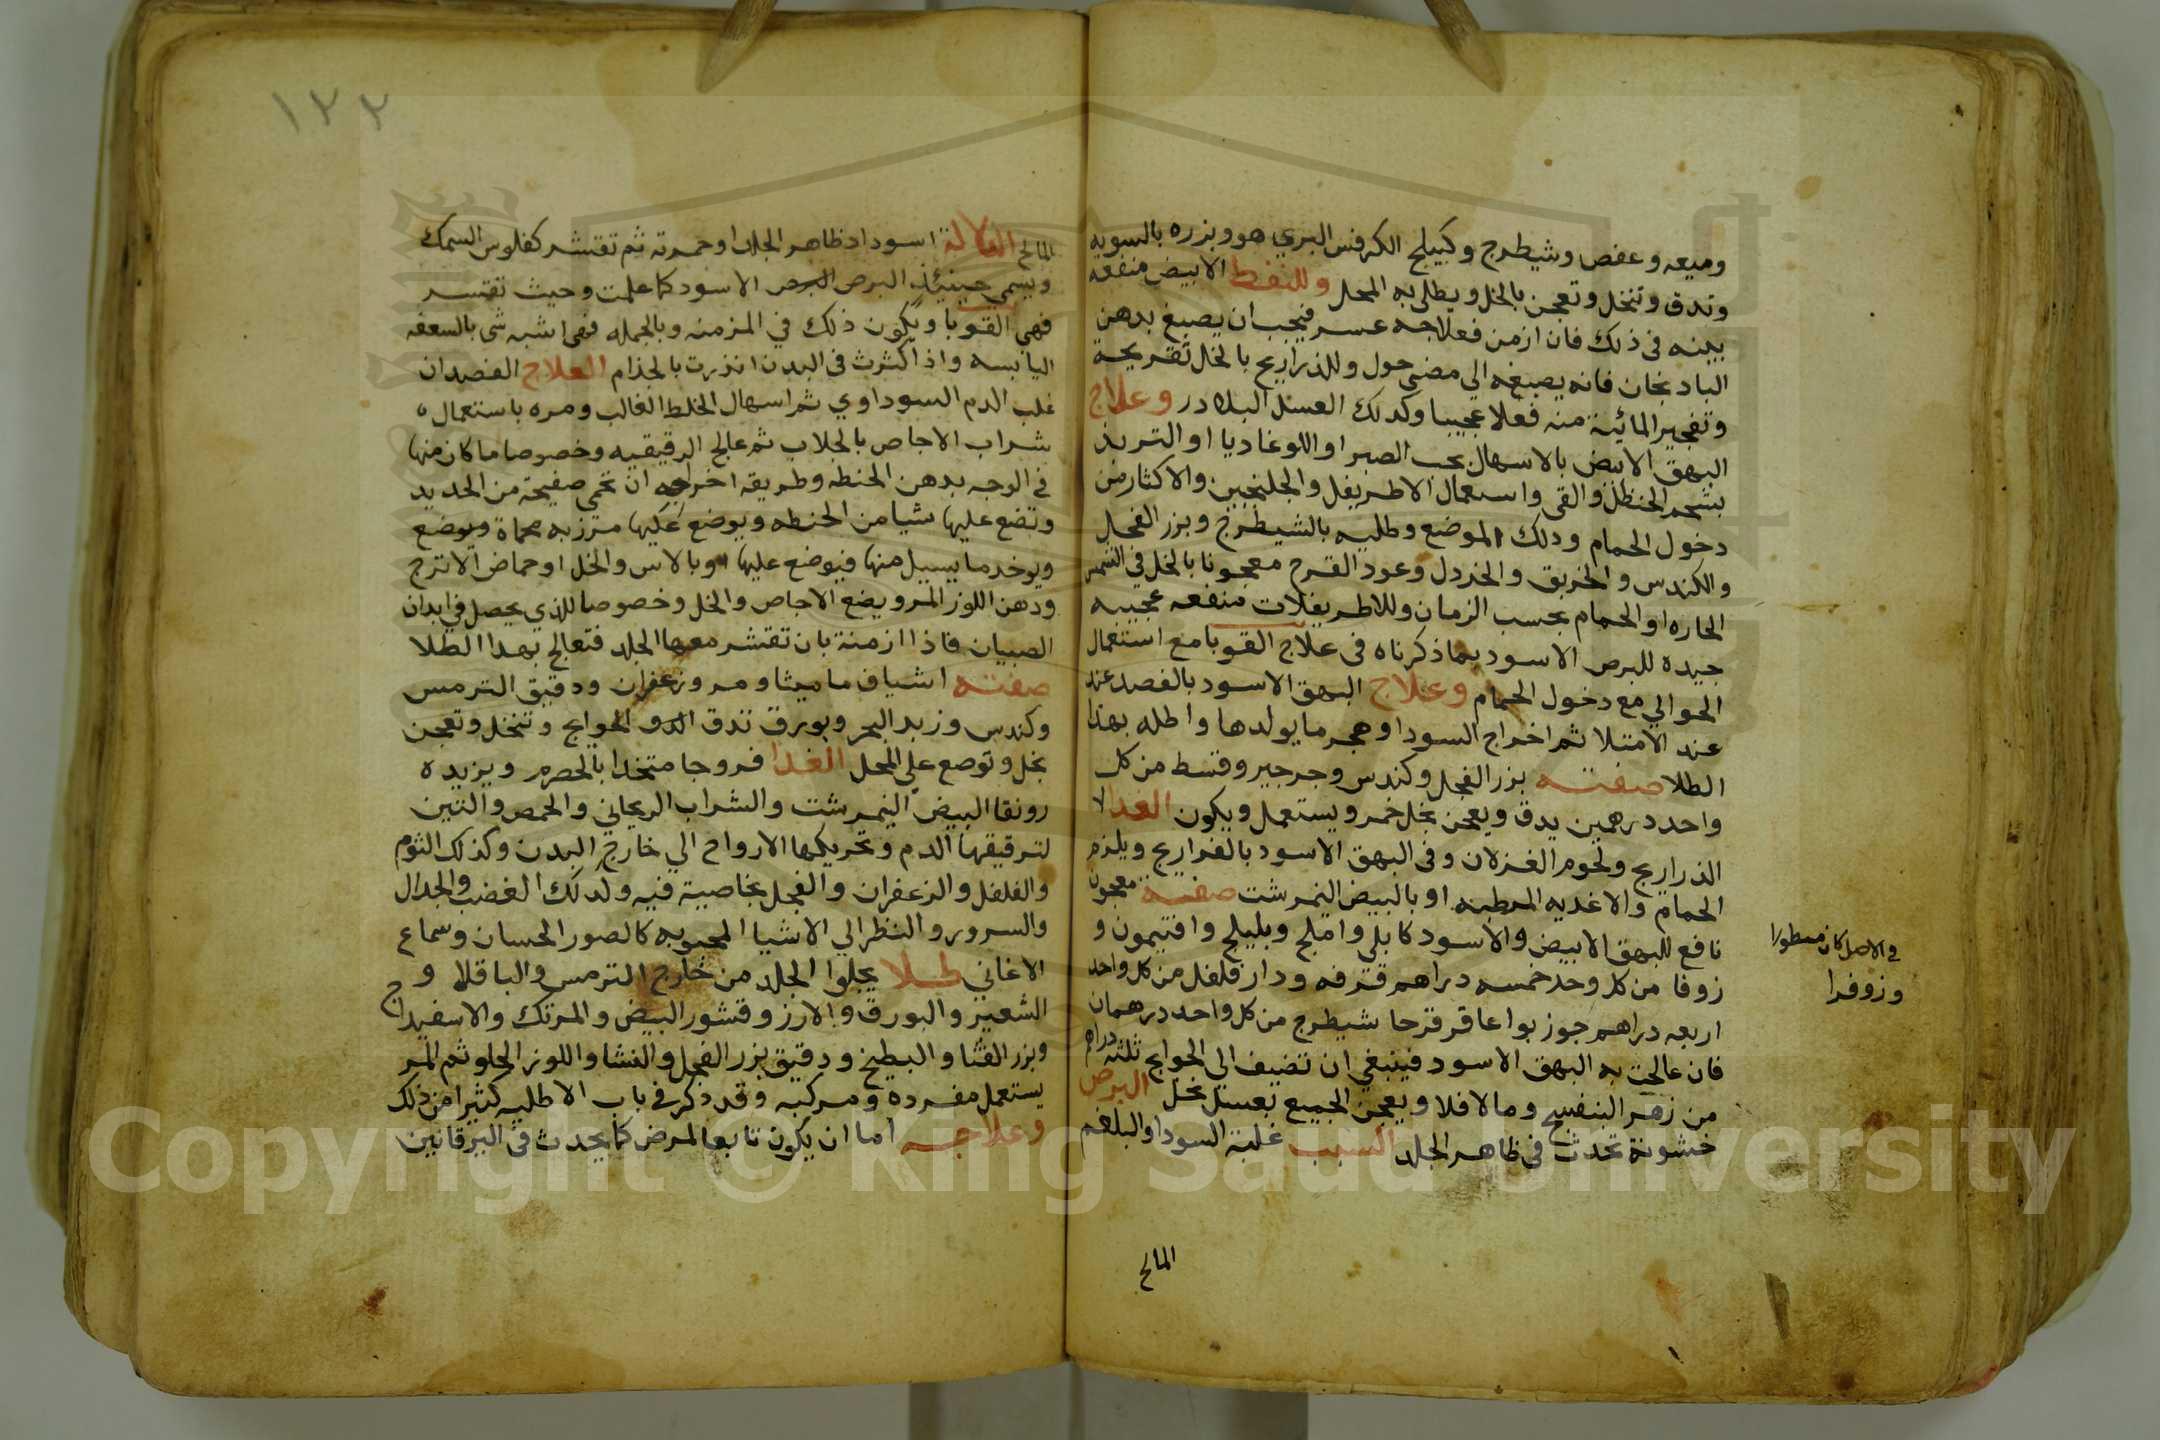 وميعه وعفص وشيطرج وكبيلج الكرفس البري هو وبزره بالسويه
وتدق وتنخل وتعجن بالخل ويطلى به المحل وللنفط الابيض منفعه
بينه في ذلك فان ازمن فعلاجه عسر فيجب ان يصبغ بدهن
الباد نجان فانه يصبغه الي مضي حول وللذراريح بالخل تقريحة
وتفجير المائية منه فعلا عجيبا وكذلك العسل البلادر وعلاج
البهق الابيض بالاسهال بحب الصبر او اللوغاديا او التربذ
بشحم الحنظل والقي واستعمال الاطريفل والجلنجبين والاكثار من
دخول الحمام ودلك الموضع وطليه بالشيطرج وبزر الفجل
والكندس والخربق والخردل وعود القرح معجونا بالخل في الشمس
الحاره او الحمام بحسب الزمان وللاطريفلات منفعه عجيبه
جيده للبرص الاسود بما ذكرناه في علاج القوبا مع استعمال
الحوالي مع دخول الحمام وعلاج البهق الاسود بالفصد عند
عند الامتلا ثم اخراج السودا وهجر ما يولدها واطله بهذا
الطلا صفته بزر الفجل وكندس وجرجير وقسط من كل
واحد درهمين يدق ويعجن بخل خمر ويستعمل ويكون الغدا لا
الذراريح ولحوم الغزلان وفي البهق الاسود بالفراريج ويلزم
الحمام والاغديه المرطبه او بالبيض النمرشت صفة معجون
نافع للبهق الابيض والاسود كابلي واملج وبليلج وافتيمون و
زوفا من كل وحد خمسه دراهم قرفه ودار فلفل من كل واحد
اربعه دراهم جوز بوا عاقر قرحا شيطرج من كل واحد درهمان
فان عالجت به البهق الاسود فينبغي ان تضيف الى الحوايج ثلثه دراهم
من زهر البنفسج وما لافلا ويعجن الجميع بعسل نحل البرص
خشونة تحدث في ظاهر الجلد السبب غلبة السودا والبلغم
المالح
في الاصل كان مسطورا
وزوفرا
١٢٢
المالح العلامة اسوداد ظاهر الجلد او حمرته ثم تقشر كفلوس السمك
ويسمى حينئذ البرص الاسود كما علمت وحيث تقشر
فهي القوبا ويكون ذلك في المزمنه وبالجمله فهي اشبه شي بالسعفه
اليابسه واذا كثرت في البدن انذرت بالجذام العلاج الفصد ان
غلب الدم السوداوي ثم اسهال الخلط الغالب ومره باستعمال
شراب الاجاص بالجلاب ثم عالج الرقيقيه وخصوصا ما كان منها
في الوجه بدهن الحنطه وطريقه اخراجه ان تحمى صفيحة من الحديد
وتضع عليها شيا من الحنطه ويوضع عليها مرزبه محماة ويوضع
ويوخد ما يسيل منها فيوضع عليها وبالاس والخل او حماض الاترج
ودهن اللوز المر ويضع الاجاص والخل وخصوصا للذي يحصل في ابدان
الصبيان فاذا ازمنة بان تقشر معها الجلد فتعالج بهدا الطلا
صفته اشياف ماميثا ومر وزعفران ودقيق الترمس
وكندس وزبد البحر وبورق تدق الحوايج وتنخل وتعجن
بخل وتوضع علي المحل الغدا فروجا متخدا بالحصرم ويزيده
رونقا البيض النمرشت والشراب الريحاني والحمص والتين
لترقيقها الدم وتحريكها الارواح الي خارج البدن وكذلك الثوم
والفلفل والزعفران والفجل بخاصية فيه ولدلك الغضب والجدال
والسرور والنظر الي الاشيا المحبوبه كالصور الحسان وسماع
الاغاني طلا يجلوا الجلد من خارج الترمس والباقلا و
الشعير والبورق والارز وقشور البيض والمرتك والاسفيداج
وبزر القثا والبطيخ ودقيق بزر الفجل والنشا واللوز الحلو ثم المر
يستعمل مفرده ومركبه وقد ذكر في باب الاطليه كثيرا من ذلك
وعلاجه اما ان يكون تابعا لمرض كما يحدث في اليرقانين
Copyright © King Saud University